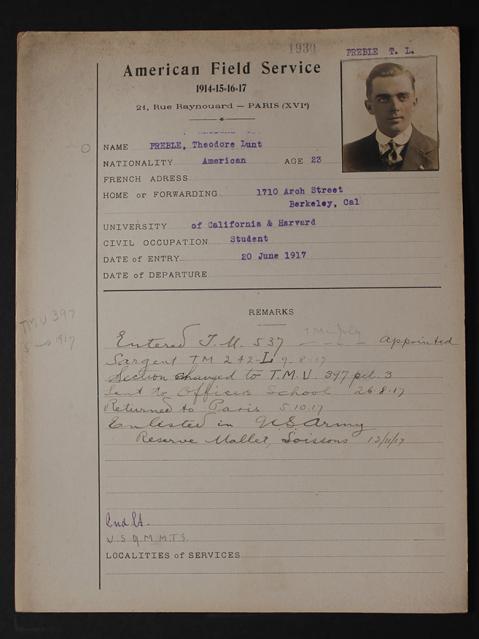 1930
PREBLE T. L.
American Field Service
1914-15-16-17
21, Rue Raynouard — PARIS (XVIe)
NAME PREBLE, Theodore Lunt
NATIONALITY American AGE 23
FRENCH ADRESS
HOME or FORWARDING 1710 Arch Street
Berkeley, Cal
UNIVERSITY of California & Harvard
CIVIL OCCUPATION Student
DATE of ENTRY 20 June 1917
DATE of DEPARTURE
REMARKS
TMU 397
1917
Entered T.M. 537 appointed
Sargent T.M 242-L 9-8-17
Section changed to T.M.U. 397 pel. 3
Sent to Officers School 26-8-17
Returned to Paris 5.10.17
Enlested in U.S. Army
Reserve Mallet, Soissons 12/11/17
2nd Lt.
U.S.Q.M.M.T.S.
LOCALITIES of SERVICES